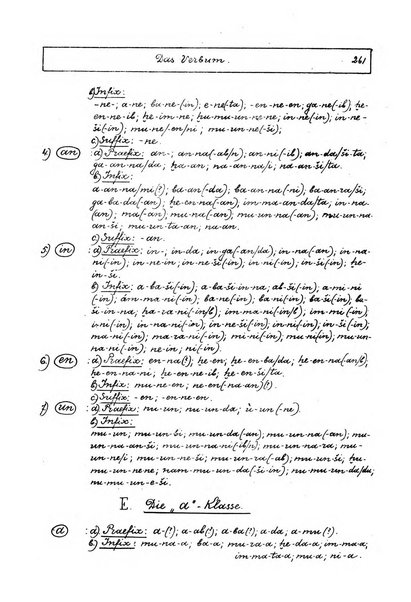 Das Verbum. 241
b) Infix:
-ne-; a-ne; ba-ne-(in); e-ne(ta); -en-ne-en; ga-ne(-ib); ḫe-
en-ne-ib; ḫe-im-ne; ḫu-mu-un-ne-ne; in-ne(-in); in-ne-
ši(-in); mu-ne/-en/ni; mu-un-ne(-ši);
c) Suffix: -ne.
4) (an) : a) Praefix: an-; an-na(-ab/n); an-ni(-ib); an-da/ši/ta;
ga-an-na/da; ḫa-an; na-an-na/i; na-an-ši/ta.
b) Infix:
a-an-na/mi(?); ba-an(-da); ba-an-na(-ni); ba-an-ra/ši;
ga-ba-da(-an); ḫe-en-na(-an); im-ma-an-da/ta; in-na-
(an); ma(-an); mu-na(-an); mu-un-na(-an); mu-un-na-
an-ši; mu-un-ta-an; na-an.
c) Suffix: -an.
5) (in) : a) Praefix: in-; in-da; in-ga(-an/da); in-na(-an); in-na-
ni(-in); in-ne-in; in-ne-ši(-in); in-ni(-in); in-ši(-in); ḫe-
in-ši.
b) Infix: a-ba-ši(-in); a-ba-ši-in-na; ab-ši(-in); a-mi-ni
(-in); ám-ma-ni(-in); ba-ne(-in); ba-ni(-in); ba-ši(-in); ba-
ši-in-na; ḫa-ra-ni(-in/b); im-ma-ni(-in/b); im-mi(-in);
i-ni(-in); in-na-ni(-in); in-ne-ši(-in); in-ni(-in); in-ši(-in);
ma-ni(-in); ma-ra-ni(-in); mi-ni(-in); mu-ni(in); mu-un-
na-ni(-in); ne-in; ni(-in).
6) (en) : a) Praefix: en-na(?); ḫe-en; ḫe-en-ba/da; ḫe-en-na(an/b);
ḫe-en-na-ni; ḫe-en-ne-ib; ḫe-en-ši/ta.
b) Infix: mu-ne-en; ne-en(-na-an)(?).
c) Suffix: -en; -en-ne-en.
7) (un) : a) Praefix: mu-un; mu-un-da; ù-un(-ne).
b) Infix:
mu-un; mu-un-ši; mu-un-da(-an); mu-un-na(-an); mu-
un-na-an-ši; mu-un-na-ni(-ib/n); mu-un-na-ra; mu-
un-ne/i; mu-un-ne-ši; mu-un-ra(-ab); mu-un-ši; ḫu-
mu-un-ne-ne; nam-mu-un-da(-ši-in); nu-mu-un-da/du;
nu-mu-un-e-ši.
E. Die „a"-Klasse.
(a) : a) Praefix: a-(?); a-ab(?); a-ba(?); a-da; a-mu(?).
b) Infix: mu-na-a; ba-a; mu-un-ra-a; ḫe-da-a; im-ma-a;
im-ma-ta-a; mu-a; ni-a.